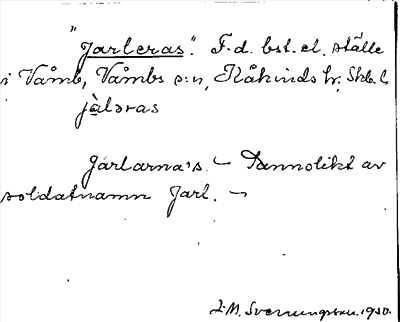 "Jarleras". F.d. bst. el. ställe
i Våmb, Våmbs s:n, Kåkinds hr, Skb. l.
jàləras
Jarlarna's. – Sannolikt av
soldatnamn Jarl. –
J.M. Svenungsson. 1930.